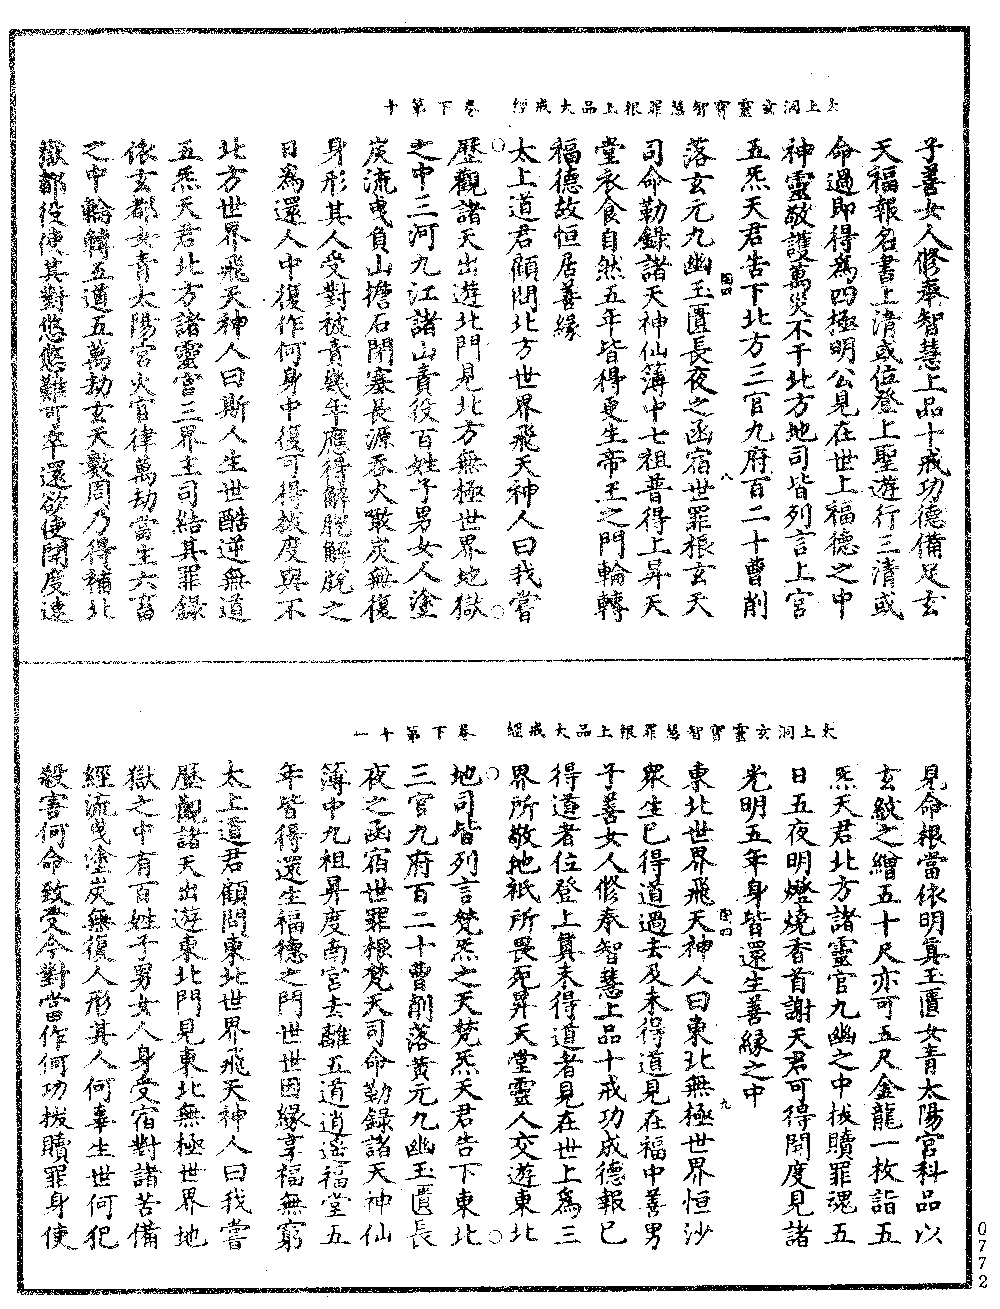 太上洞玄靈寶智慧罪根上品大戒經　卷下第十
子善女人修奉智慧上品十戒功德備足玄
天福報名書上清或位登上聖遊行三清或
命過即得為四極明公見在世上福德之中
神靈敬護萬災不干北方地司皆列言上宮
五炁天君告下北方三官九府百二十曹削
落玄元九幽玉匱長夜之函宿世罪根玄天
司命勒錄諸天神仙簿中七祖普得上昇天
堂衣食自然五年皆得更生帝王之門輪轉
福德故恒居善緣
太上道君顧問北方世界飛天神人曰我嘗
歷觀諸天出遊北門見北方無極世界地獄
之中三河九江諸山責役百姓子男女人塗
炭流曳負山擔石閉塞長源吞火散炭無復
身形其人受對被責幾年應得解脫解脫之
日為還人中復作何身中復可得披度與不
北方世界飛天神人曰斯人生世酷逆無道
五炁天君北方諸靈官三界王司結其罪錄
依玄都女青太陽宮火官律萬劫當生六畜
之中輪轉五道五萬劫玄天數周乃得補北
嶽都役使其對悠悠難可卒還欲使開度遠
太上洞玄靈寶智慧罪根上品大戒經　卷下第十一
見命根當依明真玉匱女青太陽宮科品以
玄紋之繒五十尺亦可五尺金龍一枚詣五
炁天君北方諸靈官九幽之中拔贖罪魂五
日五夜明燈燒香首謝天君可得開度見諸
光明五年身皆還生善緣之中
東北世界飛天神人曰東北無極世界恒沙
衆生已得道過去及未得道見在福中善男
子善女人修奉智慧上品十戒功成德報已
得道者位登上真未得道者見在世上為三
界所敬地祇所畏死昇天堂靈人交遊東北
地司皆列言梵炁之天梵炁天君告下東北
三官九府百二十曹削落黃元九幽玉匱長
夜之函宿世罪根梵天司命勒錄諸天神仙
簿中九祖昇度南宮去離五道逍遙福堂五
年皆得還生福德之門世世因緣享福無窮
太上道君顧問東北世界飛天神人曰我嘗
歷觀諸天出遊東北門見東北無極世界地
獄之中有百姓子男女人身受宿對諸苦備
經流曳塗炭無復人形其人何辜生世何犯
殺害何命致受今對當作何功拔贖罪身使
0772